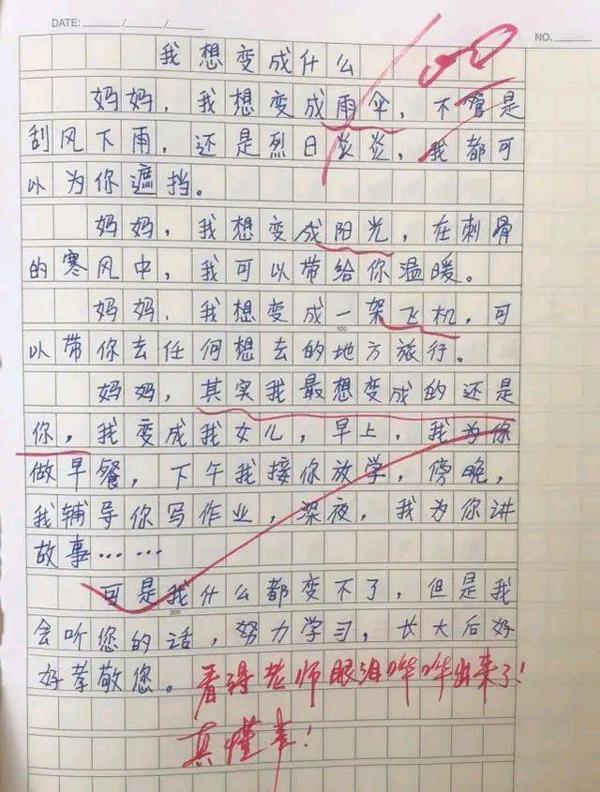 DATE: / /
NO.
我想变成什么
100
妈妈，我想变成雨伞，不管是
刮风下雨，还是烈日炎炎，我都可
以为你遮挡。
妈妈，我想变成阳光，在刺骨
的寒风中，我可以带给你温暖。
妈妈，我想变成一架飞机，可
100
以带你去任何想去的地方旅行。
妈妈，其实我最想变成的还是
你，我变成我女儿，早上，我为你
做早餐，下午我接你放学，傍晚，
我辅导你写作业，深夜，我为你讲
故事……
可是我什么都变不了，但是我
200
会听您的话，努力学习，长大后好
好孝敬您。看得老师眼泪哗哗出来了！
真懂事！